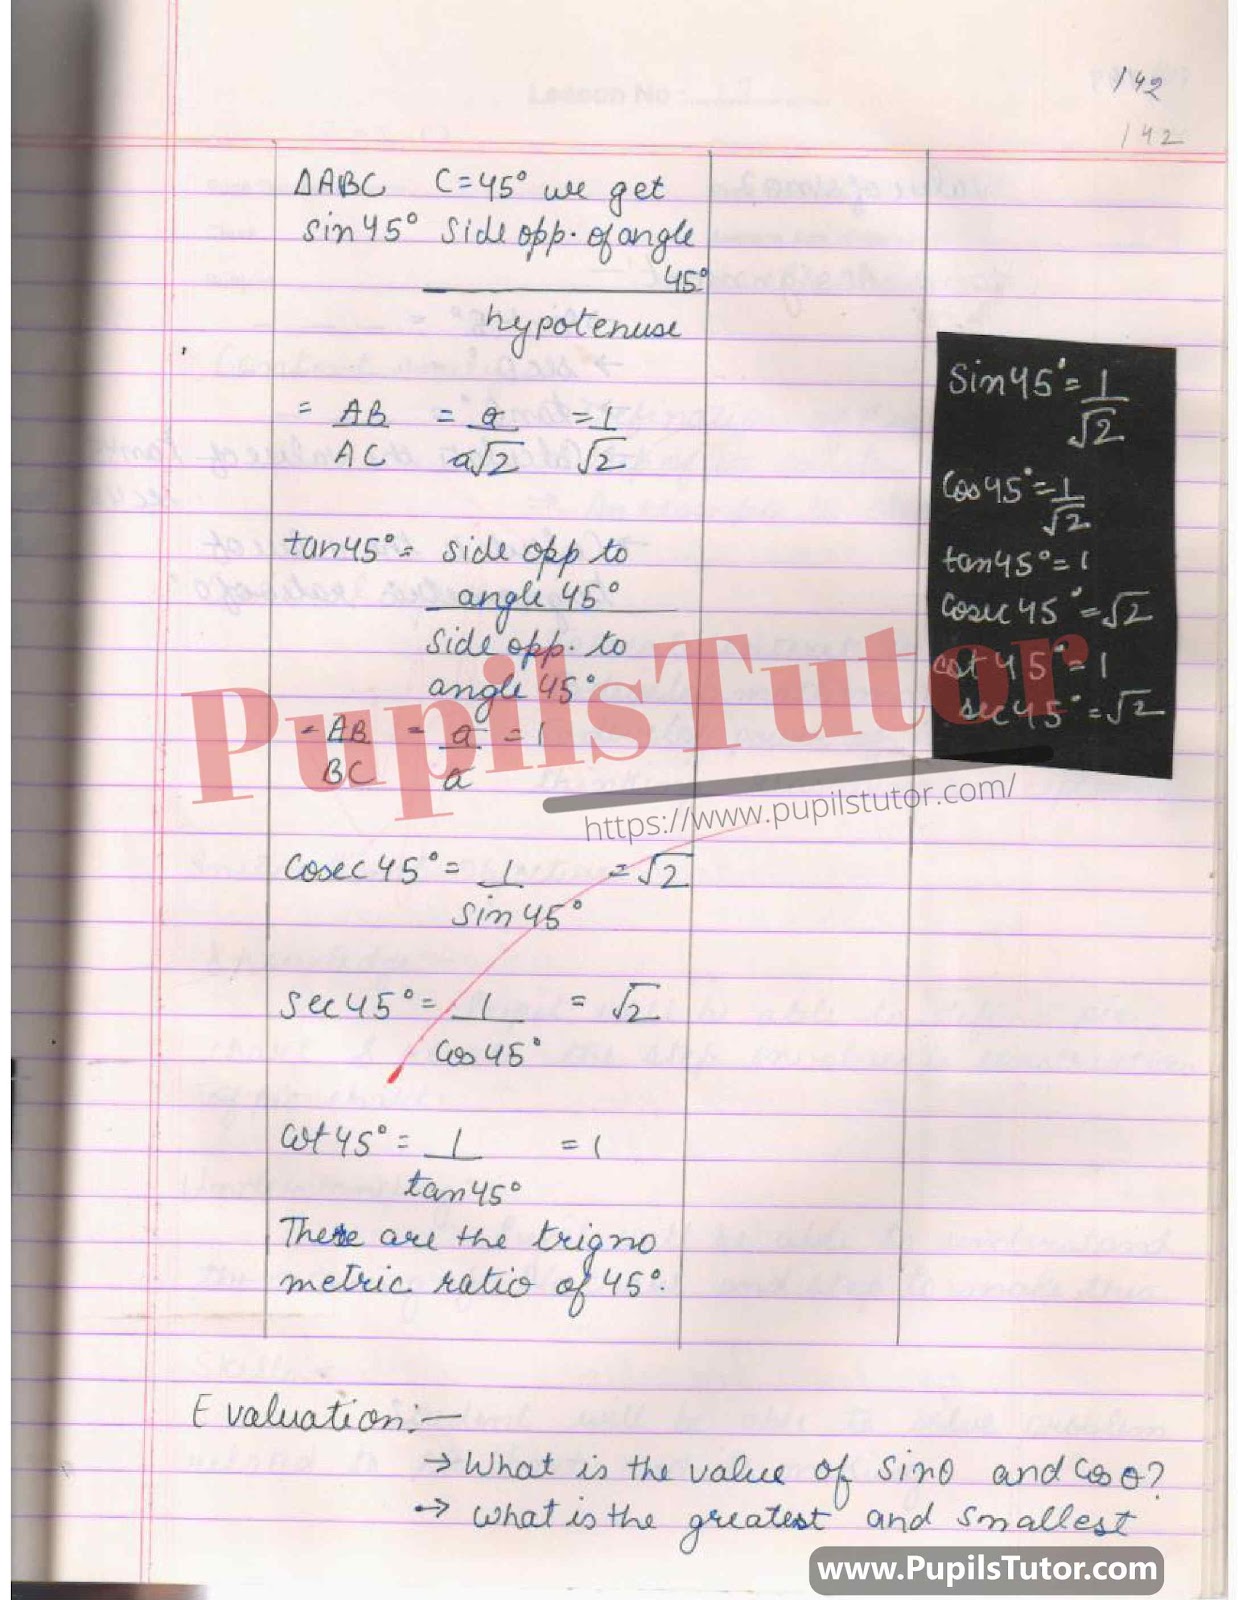 142
142
ΔABC C=45° we get
sin45° side opp. of angle
45°
hypotenuse
= AB = a = 1
AC a√2 √2
tan45° = side opp to
angle 45°
side opp. to
angle 45°
= AB = a = 1
BC a
Cosec 45° = 1 = √2
sin 45°
Sec 45° = 1 = √2
Cos 45°
Cot 45° = 1 = 1
tan 45°
These are the trigno
metric ratio of 45°.
Sin 45° = 1
√2
Cos 45° = 1
√2
tan 45° = 1
Cosec 45° = √2
cot 45° = 1
sec 45° = √2
PupilsTutor
https://www.pupilstutor.com/
Evaluation:—
→ What is the value of Sinθ and Cosθ?
→ What is the greatest and Smallest
www.PupilsTutor.com